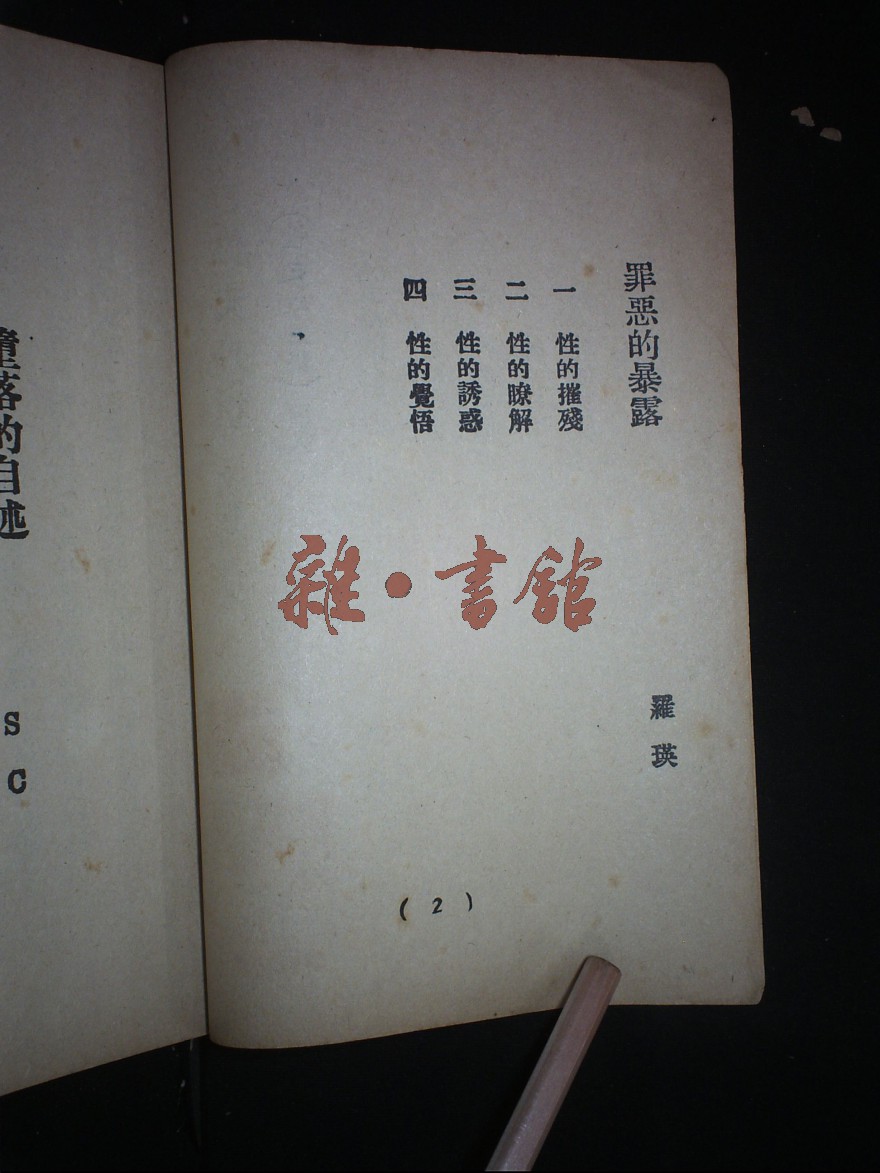 罪惡的暴露
羅瑛
一 性的摧殘
二 性的瞭解
三 性的誘惑
四 性的覺悟
(2)
雜·書館
墮落的自述
S C